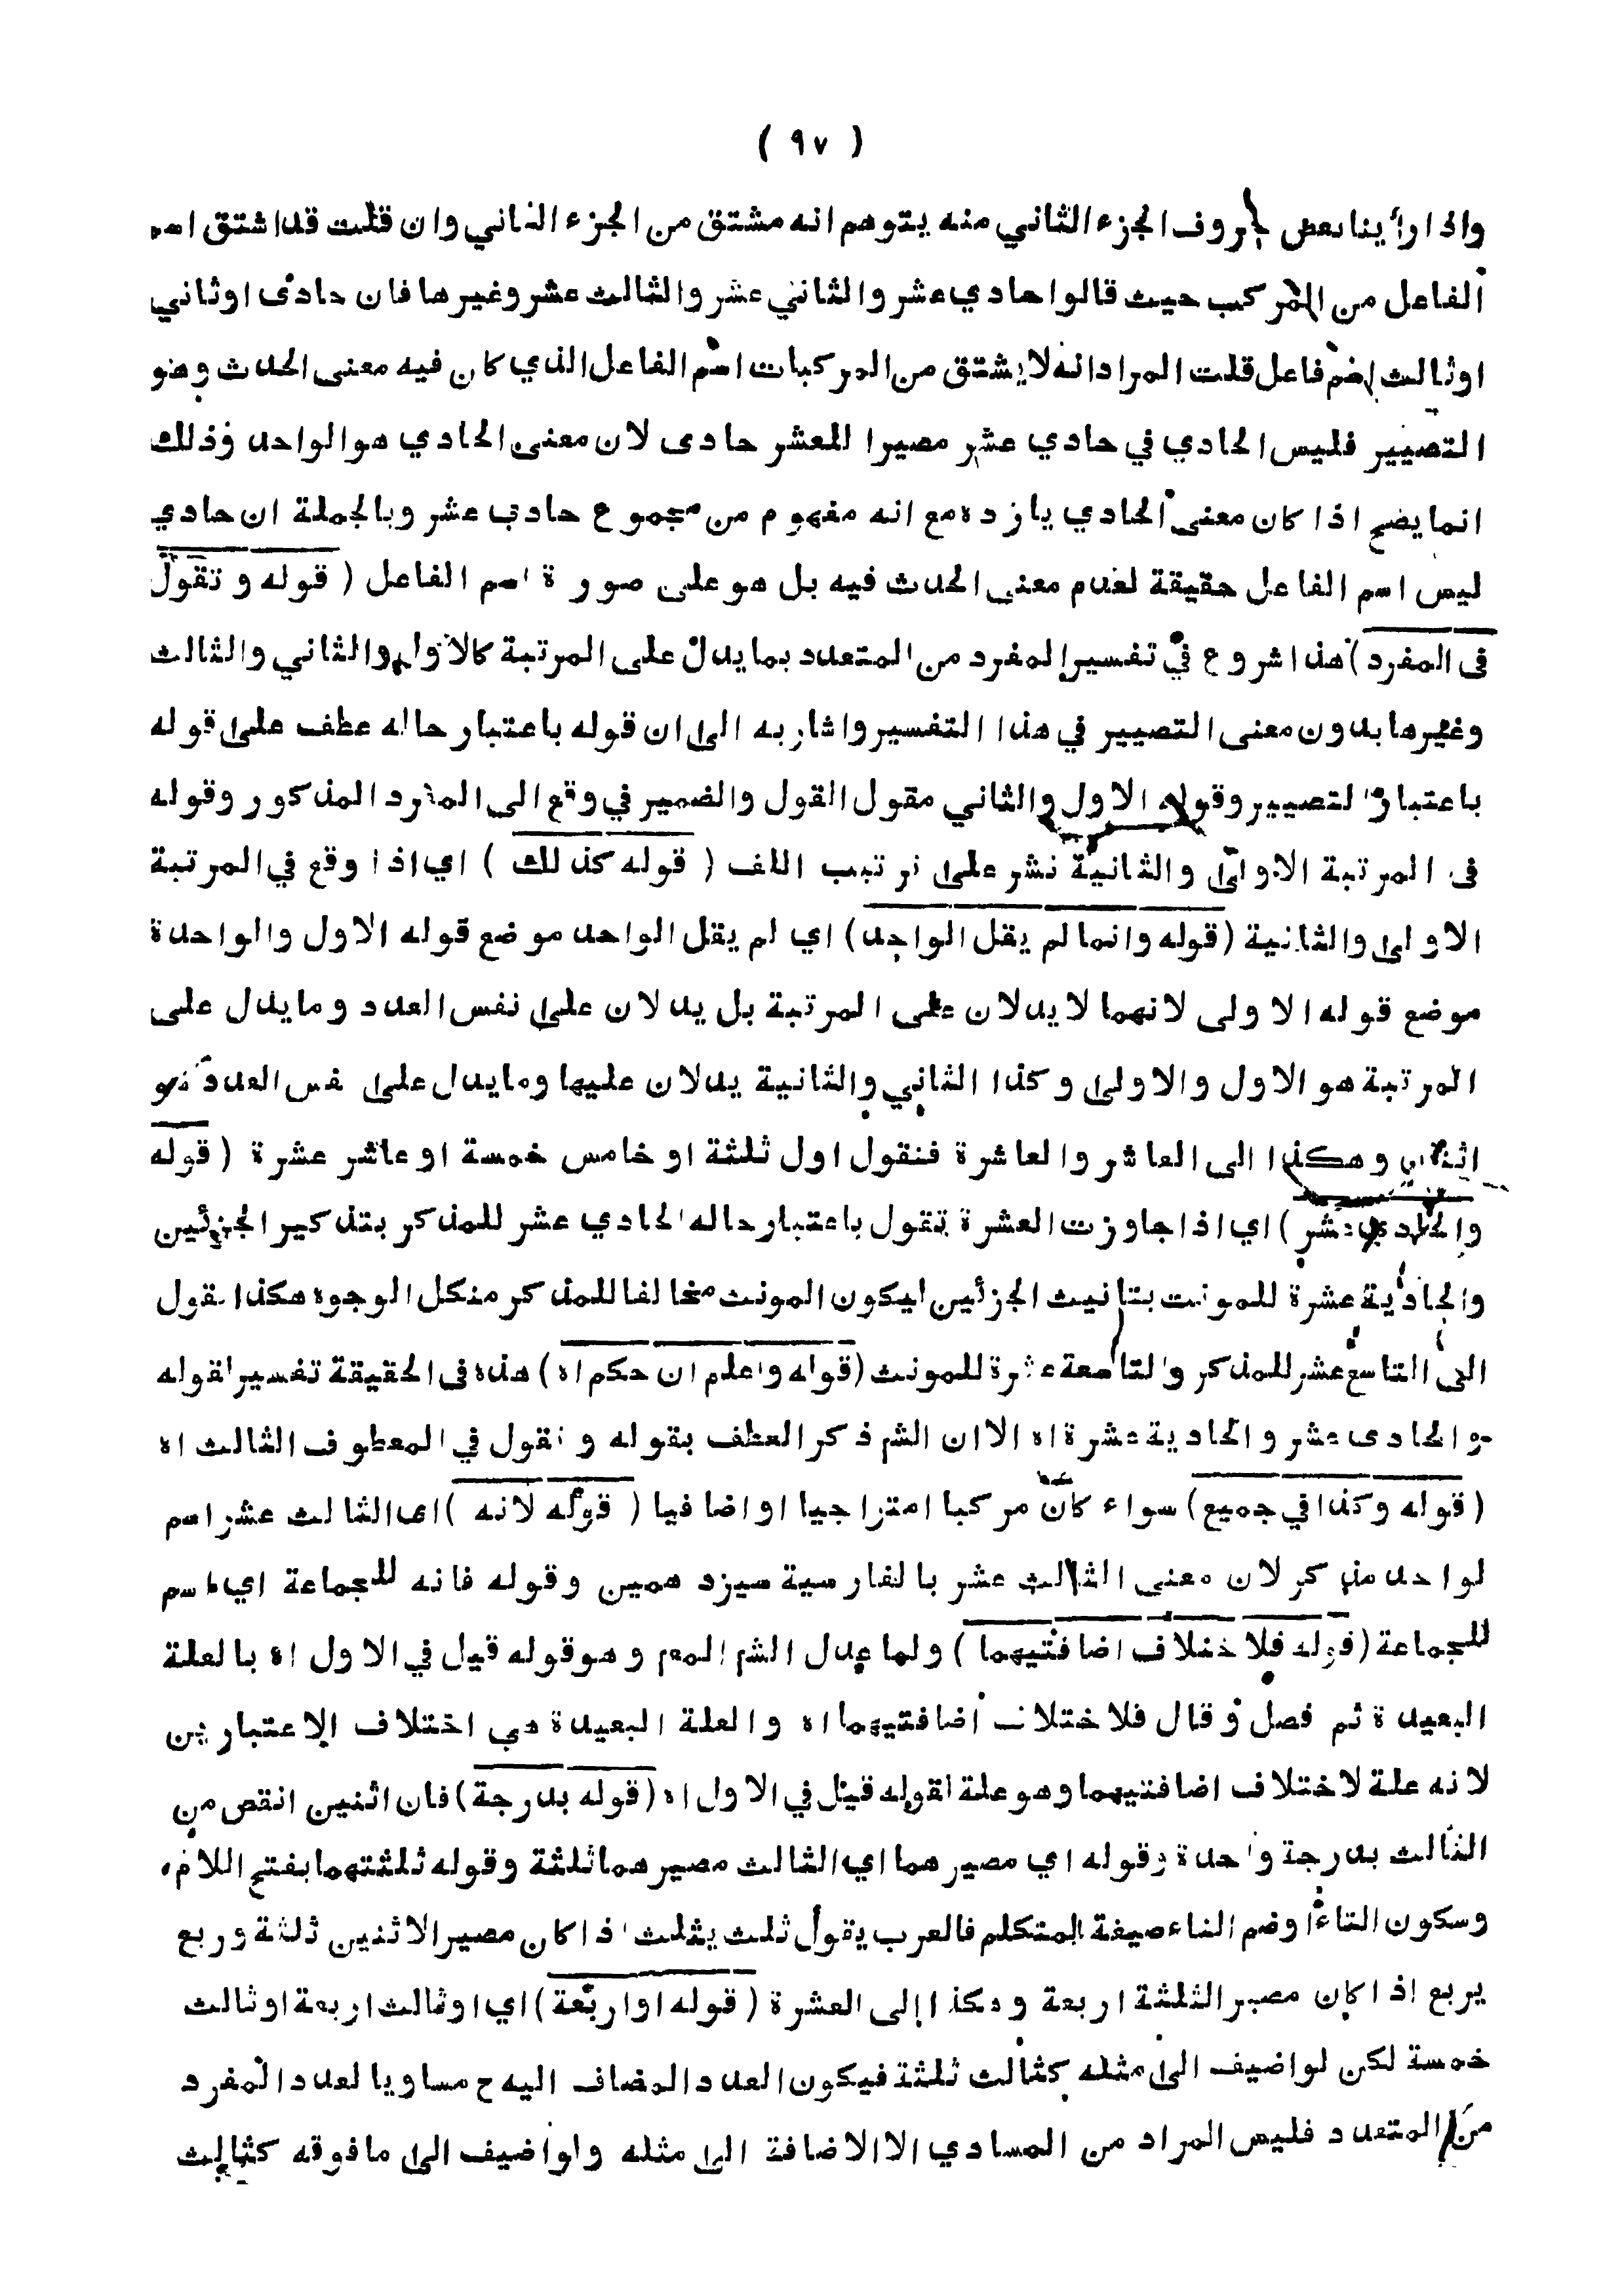 ( ٩٧ )
واذا رأينا بعض حروف الجزء الثاني منه يتوهم انه مشتق من الجزء الثاني وان قلت قد اشتق اسم
الفاعل من المركب حيث قالوا حادي عشر والثاني عشر والثالث عشر وغيرها فان حادى اوثاني
اوثالث اسم فاعل قلت المراد انه لا يشتق من المركبات اسم الفاعل الذي كان فيه معنى الحدث وهو
التصيير فليس الحادي في حادي عشر مصيرا للعشر حادى لان معنى الحادي هو الواحد وذلك
انما يضح اذا كان معنى الحادي يازده مع انه مفهوم من مجموع حادي عشر وبالجملة ان حادي
ليس اسم الفاعل حقيقة لعدم معنى الحدث فيه بل هو على صورة اسم الفاعل ( قوله و تقول
فى المفرد ) هذا شروع في تفسير المفرد من المتعدد بما يدل على المرتبة كالاول والثاني والثالث
وغيرها بدون معنى التصيير في هذا التفسير واشار به الى ان قوله باعتبار حاله عطف على قوله
باعتبار التصيير وقوله الاول والثاني مقول القول والضمير في وقع الى المفرد المذكور وقوله
فى المرتبة الاولى والثانية نشر على ترتيب اللف ( قوله كذلك ) اي اذا وقع في المرتبة
الاولى والثانية (قوله وانما لم يقل الواحد) اي لم يقل الواحد موضع قوله الاول والواحدة
موضع قوله الاولى لانهما لا يدلان على المرتبة بل يدلان على نفس العدد وما يدل على
المرتبة هو الاول والاولى وكذا الثاني والثانية يدلان عليها وما يدل على نفس العدد هو
اثنان وهكذا الى العاشر والعاشرة فنقول اول ثلثة او خامس خمسة او عاشر عشرة ( قوله
والحادي عشر ) اي اذا جاوزت العشرة تقول باعتبار حاله الحادي عشر للمذكر بتذكير الجزئين
والحادية عشرة للمونت بتانيث الجزئين ليكون المونث مخالفا للمذكر منكل الوجوه هكذا نقول
الى التاسع عشر للمذكر والتاسعة عشرة للمونث (قوله واعلم ان حكم اه) هذه فى الحقيقة تفسير لقوله
والحادى عشر والحادية عشرة اه الا ان الشم ذكر العطف بقوله و نقول في المعطوف الثالث اه
( قوله وكذا في جميع) سواء كان مركبا امتزاجيا او اضافيا ( قوله لانه )اى الثالث عشر اسم
لواحد مذكر لان معنى الثالث عشر بالفارسية سيزدهمين وقوله فانه للجماعة اي اسم
للجماعة (قوله فلاختلاف اضافتيهما ) ولما عدل الشم المصم وهو قوله قيل في الاول اه بالعلة
البعيدة ثم فصل و قال فلاختلاف اضافتيهما اه والعلة البعيدة هي اختلاف الاعتبارين
لانه علة لاختلاف اضافتيهما وهو علة لقوله قيل في الاول اه (قوله بدرجة) فان اثنين انقص من
الثالث بدرجة واحدة وقوله اي مصيرهما اي الثالث مصيرهما ثلثة وقوله ثلثتهما بفتح اللام
وسكون الثاء وضم التاء صيغة المتكلم فالعرب يقول ثلث يثلث اذا كان مصير الاثنين ثلثة وربع
يربع اذا كان مصير الثلثة اربعة وهكذا إلى العشرة ( قوله او اربعة ) اي او ثالث اربعة او ثالث
خمسة لكن لو اضيف الى مثله كثالث ثلثة فيكون العدد المضاف اليه ح مساويا لعدد المفرد
من المتعدد فليس المراد من المساوي الا الاضافة الى مثله ولو اضيف الى ما فوقه كثالث